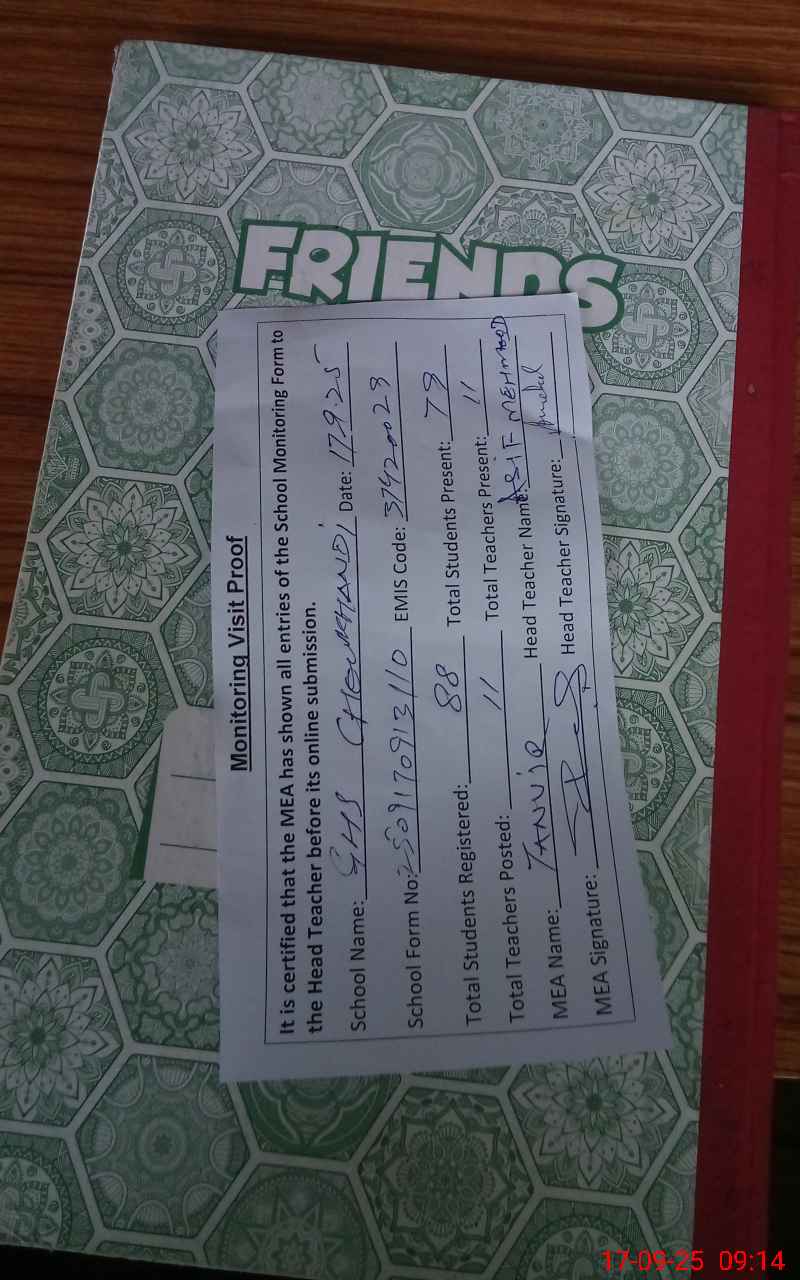 FRIENDS
Monitoring Visit Proof
It is certified that the MEA has shown all entries of the School Monitoring Form to
the Head Teacher before its online submission.
School Name: GHS CHOUKHANDI Date: 17.9.25
School Form No: 2509170913110 EMIS Code: 37420023
Total Students Registered: 88 Total Students Present: 79
Total Teachers Posted: 11 Total Teachers Present: 11
MEA Name: TANVIR Head Teacher Name: ASIF MEHMOOD
MEA Signature: Head Teacher Signature:
17-09-25 09:14